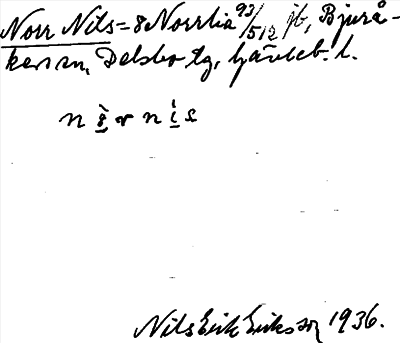 Norr Nils = 8 Norrlia 93/512 jb, Bjurå-
kers sn, Delsbo tg, Gävleb. l.
n r n i s
Nils Erik Eriksson 1936.